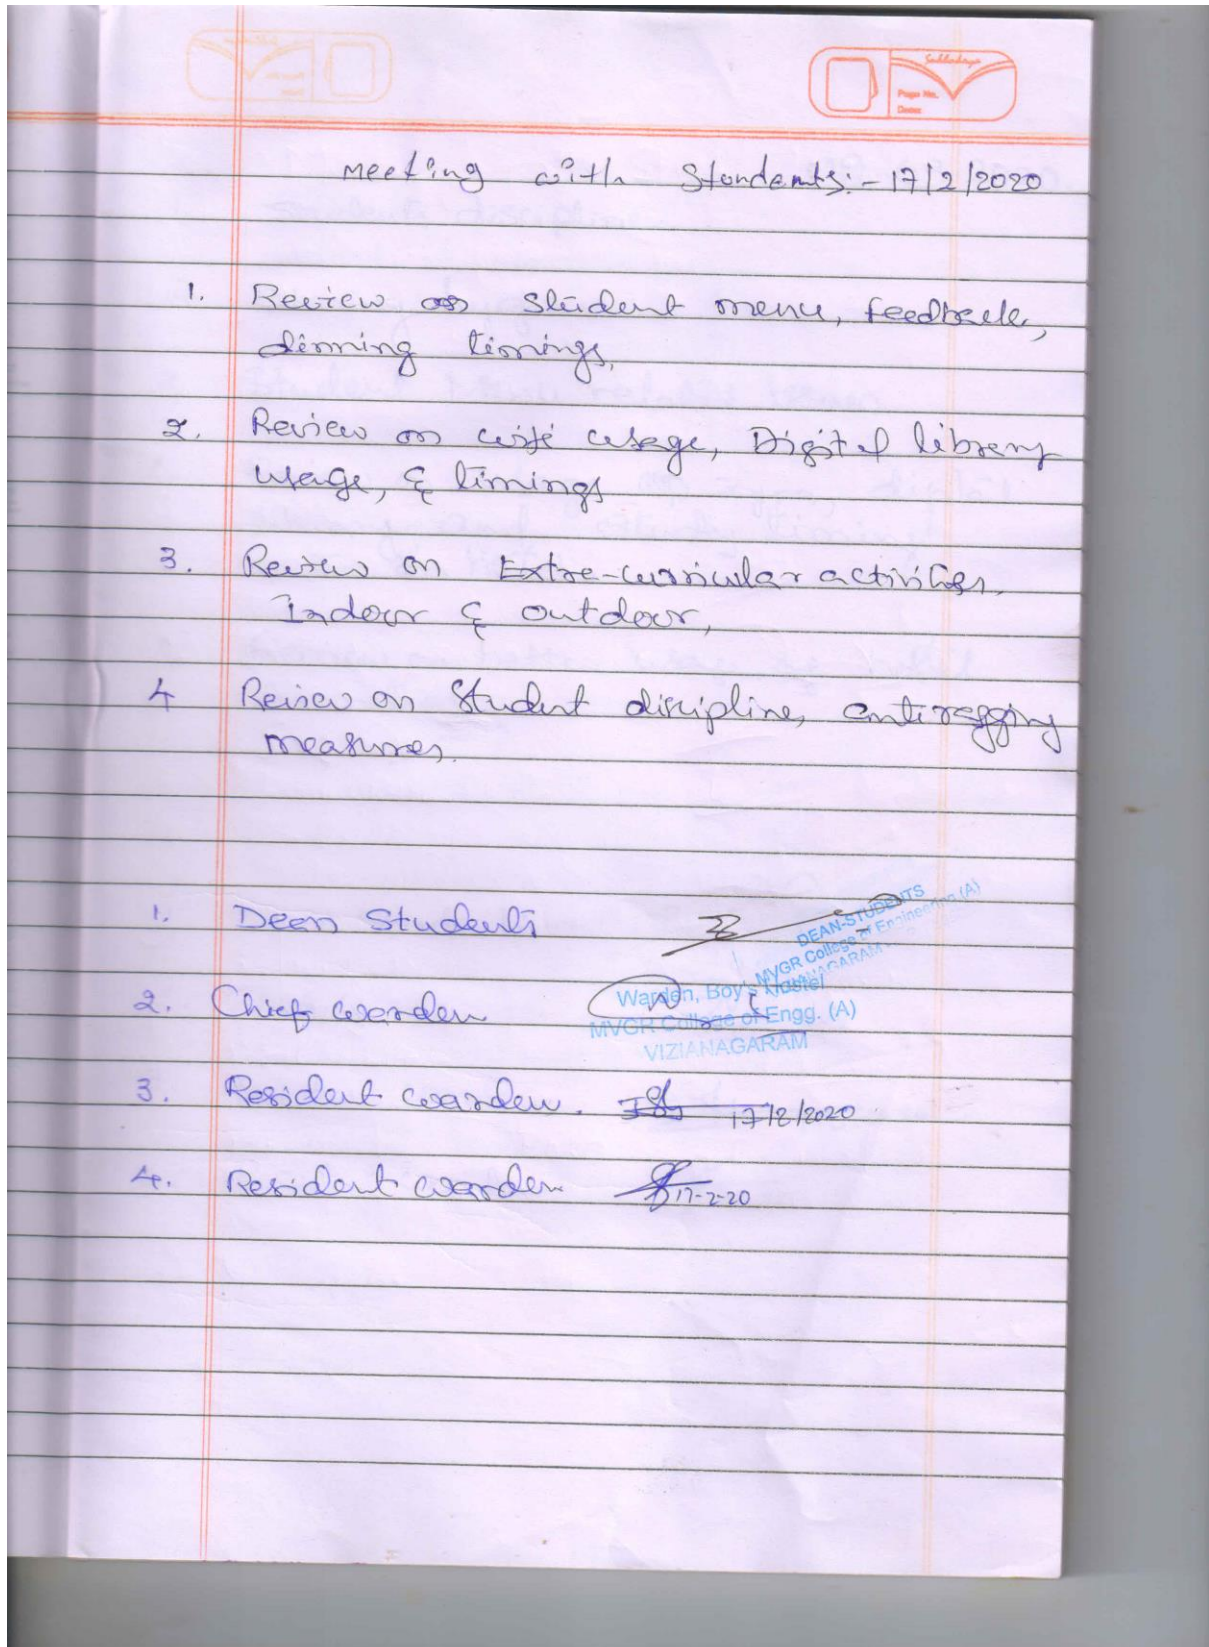 Sabhadaya
Page No.
Date:
Meeting with Stondemts:- 17/2/2020
1. Review on student menu, feedback,
dinning timings,
2. Review on wifi usage, Digital library
usage, & timings
3. Review on Extra-curricular activities,
Indoor & outdoor,
4 Review on Student discipline, anti ragging
measures.
1. Dean Students
DEAN-STUDENTS
MVGR College of Engineering (A)
VIZIANAGARAM
2. Chief warden
Warden, Boy's Hostel
MVGR College of Engg. (A)
VIZIANAGARAM
3. Resident warden. 17/2/2020
4. Resident warden 17-2-20